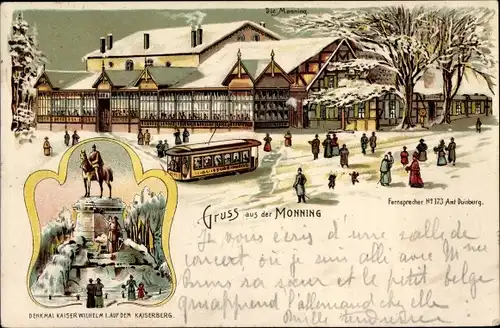 Die Monning
Gruss aus der MONNING
Fernsprecher No 173 Amt Duisburg.
DENKMAL KAISER WILHELM I. AUF DEM KAISERBERG.
Je vous écris d'une salle de
concert où je suis allé avec Mme
sa sœur et le petit belge
qui apprend l'allemand chez elle
Mille tendresses